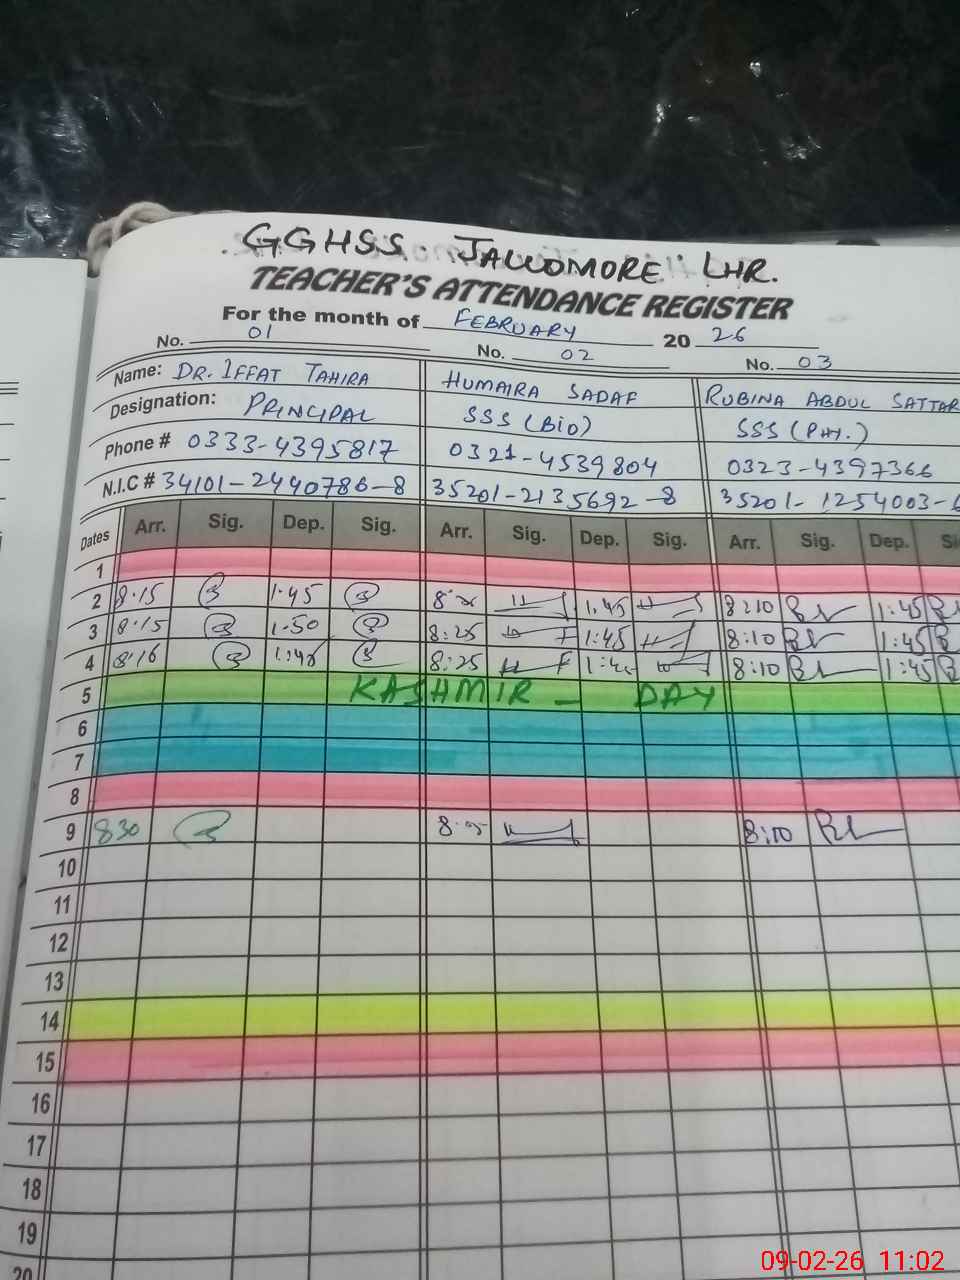 G.G.H.S.S. JALLOMORE LHR.
TEACHER'S ATTENDANCE REGISTER
For the month of FEBRUARY 20 26
No. 01 No. 02 No. 03
Name: DR. IFFAT TAHIRA HUMAIRA SADAF RUBINA ABDUL SATTAR
Designation: PRINCIPAL SSS (BIO) SSS (PHY.)
Phone # 0333-4395817 0321-4539804 0323-4397366
N.I.C # 34101-2440786-8 35201-2135692-8 35201-1254003-6
Dates Arr. Sig. Dep. Sig. Arr. Sig. Dep. Sig. Arr. Sig. Dep.
1
2 8.15 1.45 1.45 8:10 1:45
3 8.15 1.50 8:25 1:45 8:10 1:45
4 8.16 8:25 8:10 1:45
5 KASHMIR - DAY
6
7
8
9 830 8:10
10
11
12
13
14
15
16
17
18
19
20
09-02-26 11:02